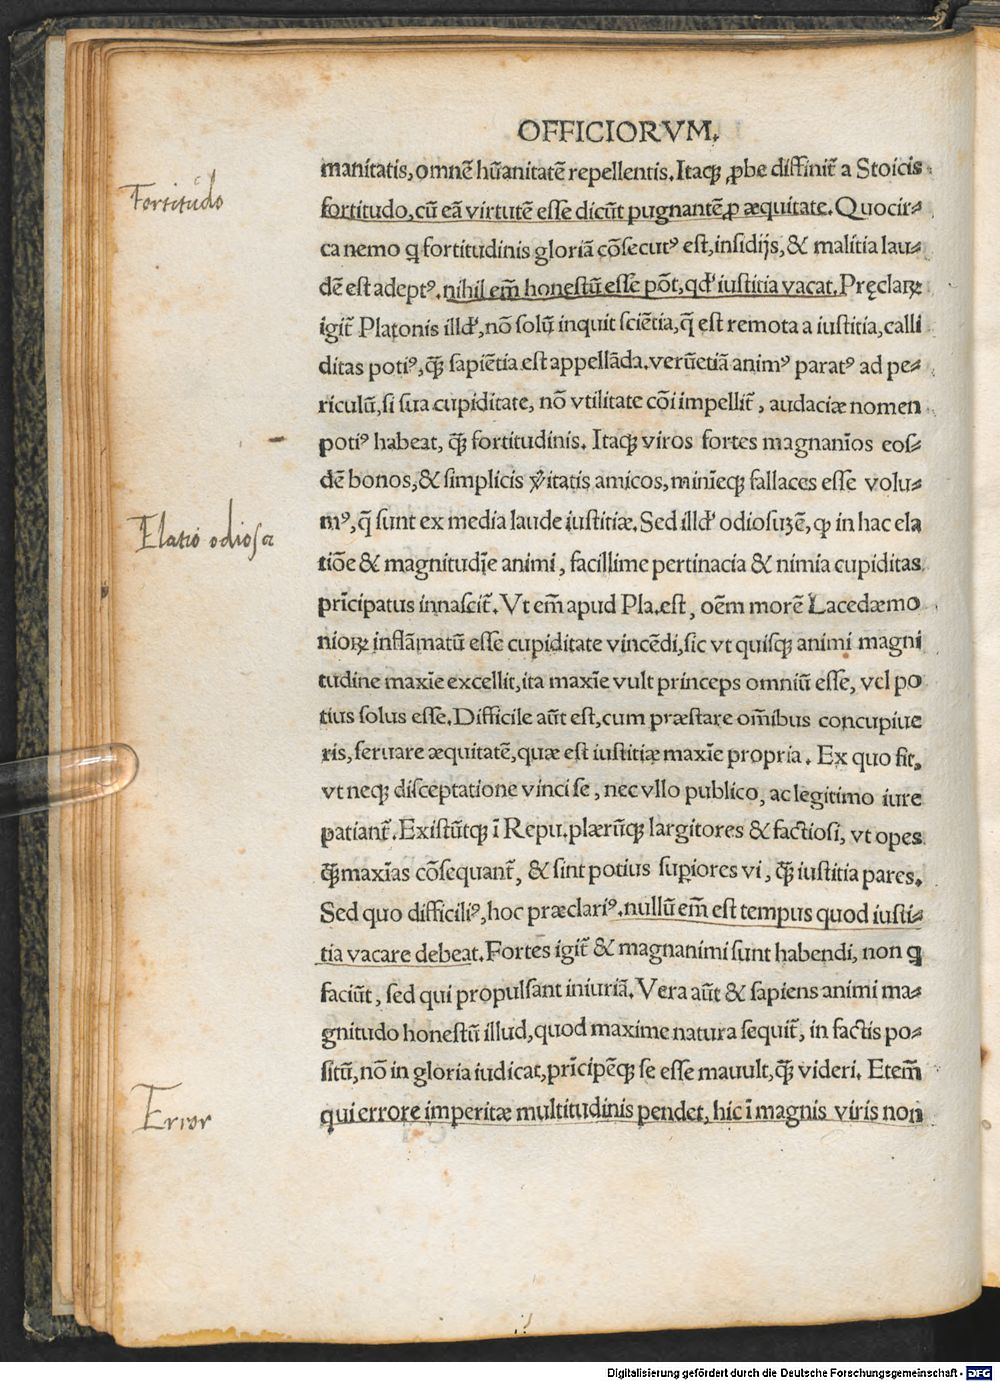 OFFICIORVM.
manitatis, omnē hūanitatē repellentis. Itaqꝫ ꝓbe diffinit̃ a Stoicis
Fortitudo
fortitudo, cū eā virtutē esse dicūt pugnantē ꝓ æquitate. Quocir⸗
ca nemo ꝗ fortitudinis gloriā cōsecutꝰ est, insidijs, & malitia lau⸗
dē est adeptꝰ. nihil em̄ honestū esse pōt, qd' iustitia vacat. Pręclaꝝ
igit̃ Platonis illd', nō solū inquit sciētia, q̄ est remota a iustitia, calli
ditas potiꝰ, q̄ꝫ sapiētia est appellāda. verūetiā animꝰ paratꝰ ad pe⸗
riculū, si sua cupiditate, nō vtilitate cōi impellit̃, audaciæ nomen
potiꝰ habeat, q̄ꝫ fortitudinis. Itaqꝫ viros fortes magnanīos eos⸗
dē bonos, & simplicis v̓itatis amicos, minīeqꝫ fallaces esse volu⸗
mꝰ, q̄ sunt ex media laude iustitiæ. Sed illd' odiosuꝫē, ꝙ in hac ela
Elatio odiosa
tiōe & magnitudīe animi, facillime pertinacia & nimia cupiditas
prīcipatus innascit̃. Vt em̄ apud Pla. est, oēm morē Lacedæmo
nioꝝ inflāmatū esse cupiditate vincēdi, sic vt quisqꝫ animi magni
tudine maxīe excellit, ita maxīe vult princeps omniū esse, vel po
tius solus esse. Difficile aūt est, cum præstare om̄ibus concupiue
ris, seruare æquitatē, quæ est iustitiæ maxīe propria. Ex quo fit,
vt neqꝫ disceptatione vinci se, nec vllo publico, ac legitimo iure
patiant̃. Existūtqꝫ ī Repu. plærūqꝫ largitores & factiosi, vt opes
q̄ꝫ maxīas cōsequant̃, & sint potius supiores vi, q̄ꝫ iustitia pares.
Sed quo difficiliꝰ, hoc præclariꝰ. nullū em̄ est tempus quod iusti⸗
tia vacare debeat. Fortes igit̃ & magnanimi sunt habendi, non ꝗ
faciūt, sed qui propulsant iniuriā. Vera aūt & sapiens animi ma⸗
gnitudo honestū illud, quod maxime natura sequit̃, in factis po⸗
sitū, nō in gloria iudicat, prīcipēqꝫ se esse mauult, q̄ꝫ videri. Etem̄
Error
qui errore imperitæ multitudinis pendet, hic ī magnis viris non
Digitalisierung gefördert durch die Deutsche Forschungsgemeinschaft - DFG